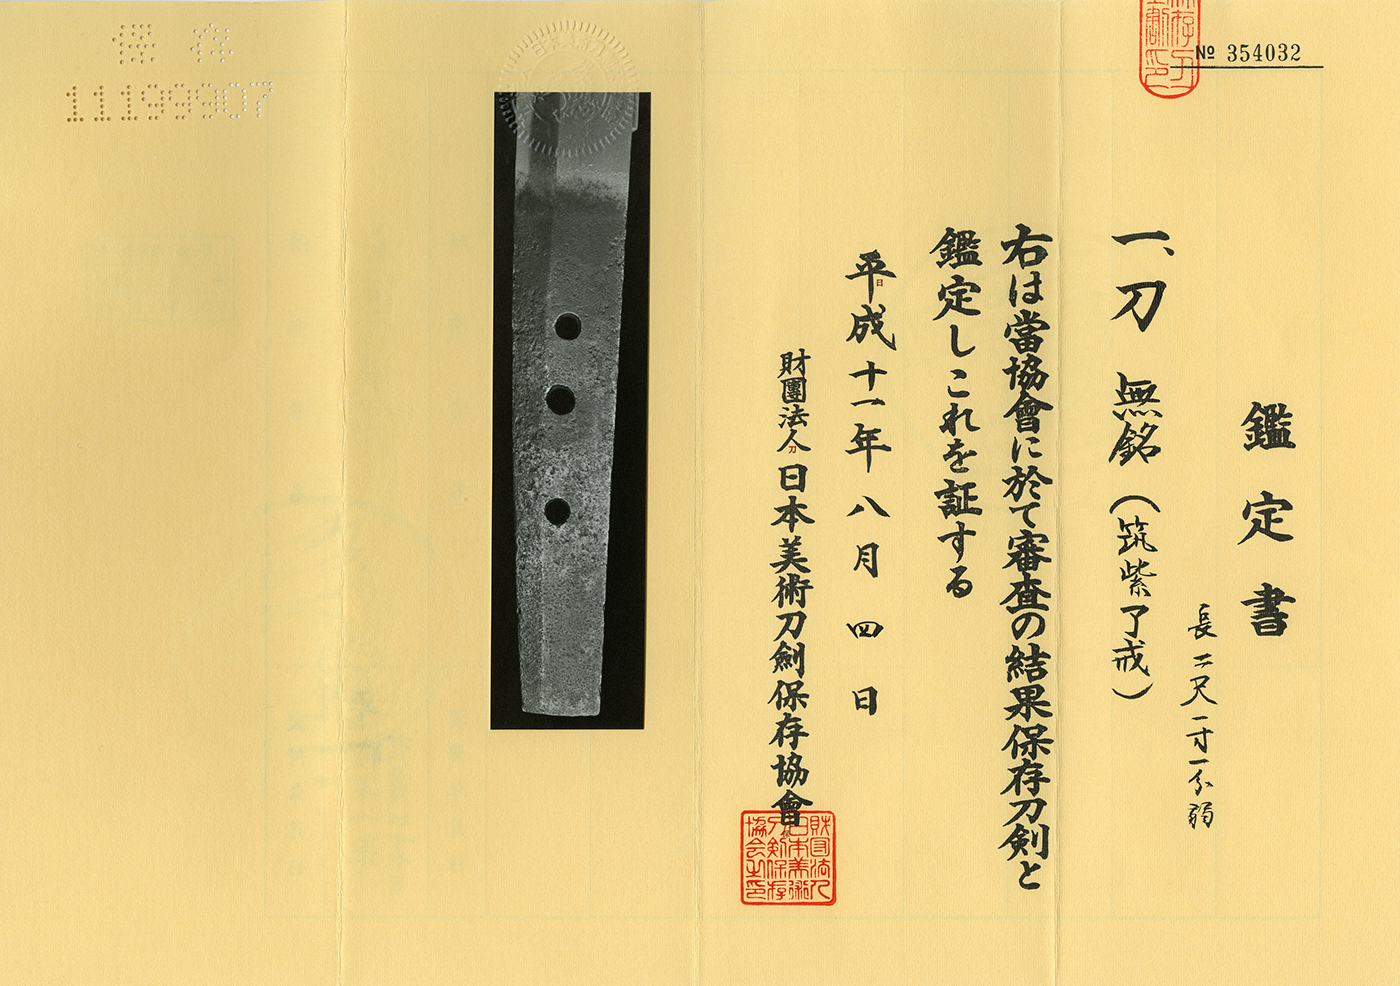 № 354032
鑑定書
長二尺一寸一分弱
一、刀 無銘（筑紫了戒）
右は當協會に於て審査の結果保存刀剣と
鑑定しこれを証する
平成十一年八月四日
財團法人日本美術刀剣保存協會
財団法人
日本美術
刀剣保存
協会之印
保存
11199907